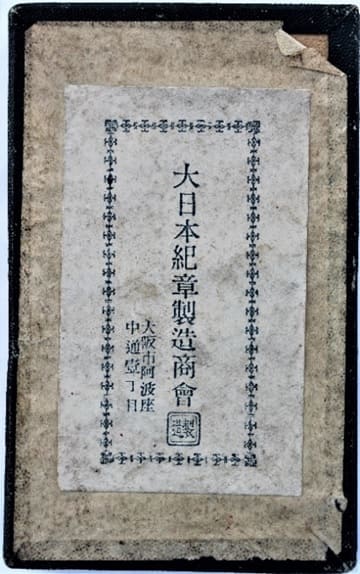 大日本紀章製造商會
大阪市阿波座
中通壹丁目
製造